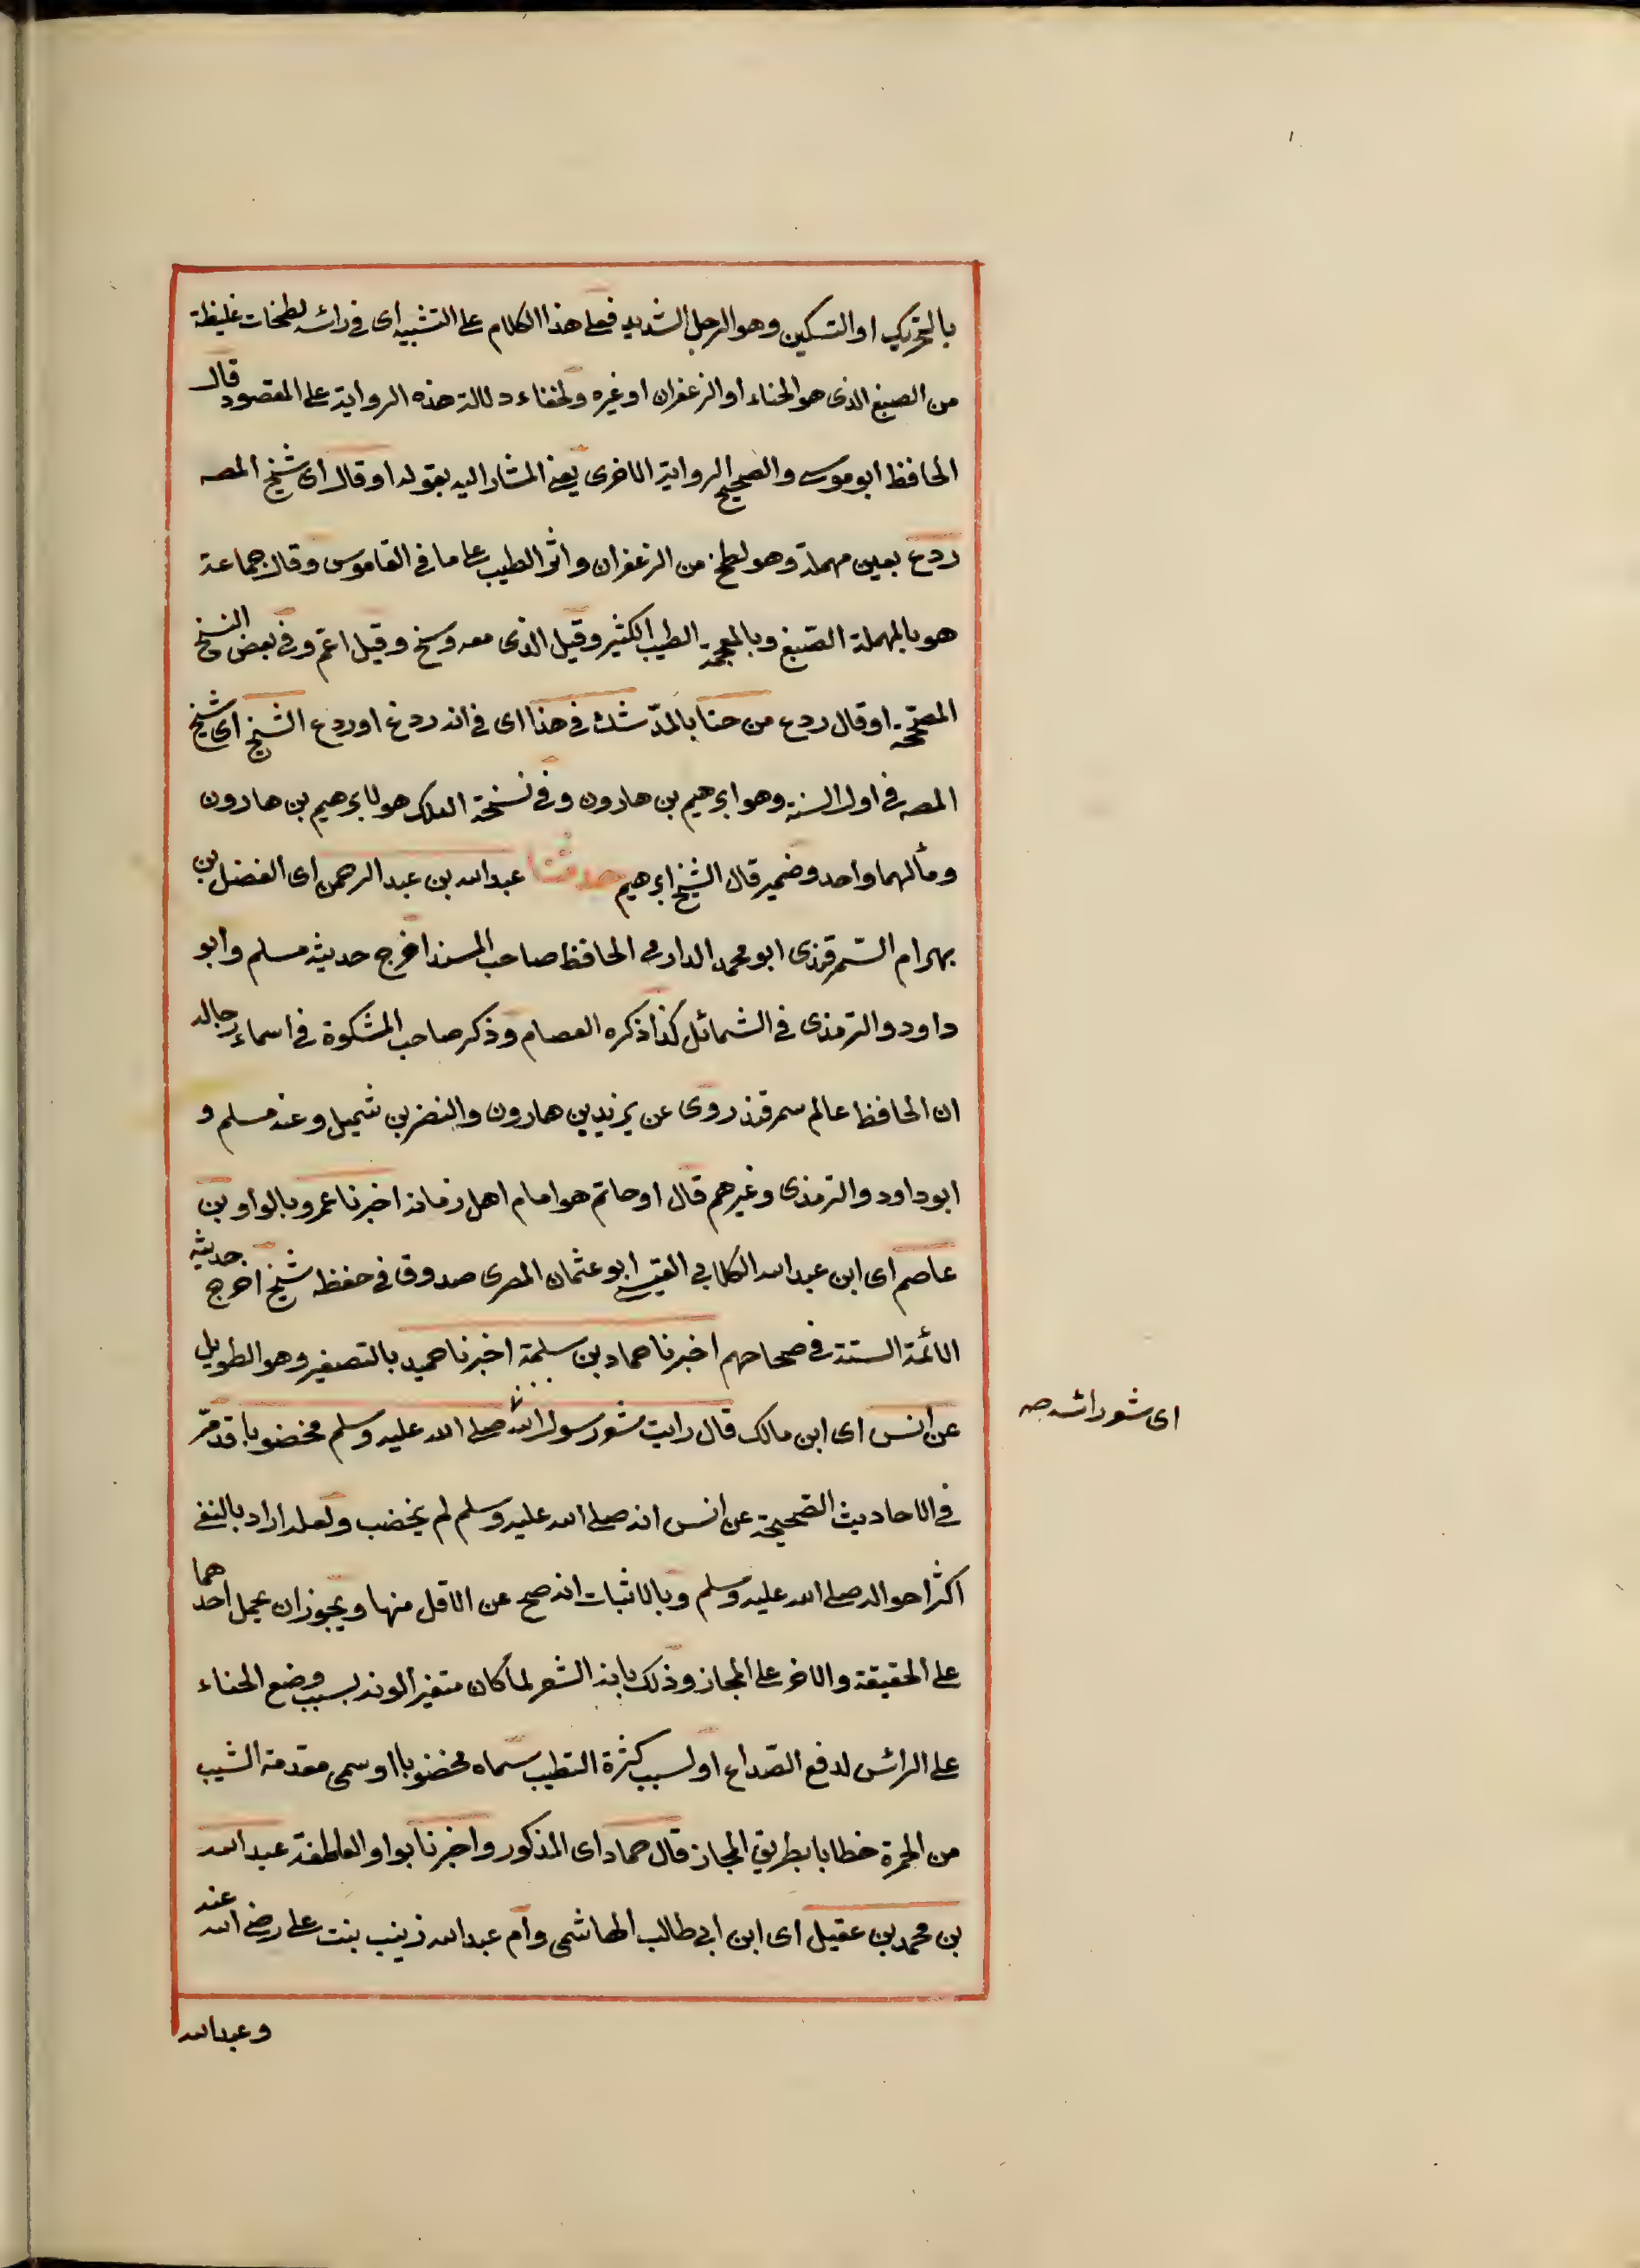 بالتحريك او التسكين وهو الرجل الشديد فعلى هذا الكلام على التشبيه اى فى رائسه لطخات غليظة
من الصبغ الذى هو الحناء او الزعفران او غيره ولخفاء دلالة هذه الرواية على المقصود قال
الحافظ ابو موسى والصحيح الرواية الاخرى يعنى المشار اليه بقوله او قال اى شيخ المصـ
ردع بعين مهملة وهو لطخ من الزعفران واثر الطيب على ما فى القاموس وقال جماعة
هو بالمهملة الصّبغ وبالمعجمة الطيب الكثير وقيل الذى معه وسخ وقيل اعّم وفى بعض النسخ
المصحّحة او قال ردع من حنا بالمدّ شك فى هذا اى فى انه ردغ او ردع الشيخ اى شيخ
المصـ فى اول السند وهو ابرهيم بن هارون وفى نسخة الشك هو لابرهيم بن هارون
ومألهما واحد وضمير قال الشيخ ابرهيم حدثنا عبد الله بن عبد الرحمن اى الفضل بن
بهرام السّمرقندى ابو محمد الدارمى الحافظ صاحب المسند اخرج حديثه مسلم وابو
داود والترمذى فى الشمائل كذا ذكره العصام وذكر صاحب المشكوة فى اسماء رجاله
ان الحافظ عالم سمرقند روى عن يزيد بن هارون والنضر بن شميل وعنه مسلم و
ابو داود والترمذى وغيرهم قال او حاتم هو امام اهل زمانه اخبرنا عمرو بالواو بن
عاصم اى ابن عبد الله الكلابى القيسى ابو عثمان المصرى صدوق فى حفظه شيخ اخرج حديثه
الائمة الستة فى صحاحهم اخبرنا حماد بن سلمة اخبرنا حميد بالتصغير وهو الطويل
عن انس اى ابن مالك قال رايت شعر رسول الله صلى الله عليه وسلم مخضوبا قد مّر
اى شعر رائسه صـ
فى الاحاديث الصّحيحة عن انس انه صلى الله عليه وسلم لم يخضب ولعله اراد بالنفى
اكثر احواله صلى الله عليه وسلم وبالاثبات انه صح عن الاقل منها ويجوز ان يحمل احدهما
على الحقيقة والاخر على المجاز وذلك بانه الشعر لما كان متغيراً لونه بسبب وضع الحناء
على الرائس لدفع الصّداع او لسبب كثرة التطيب سماه مخضوبا او سمى مقدمة الشيب
من الحمرة خطابا بطريق المجاز قال حماد اى المذكور واخبرنا بواو العاطفة عبد الله
بن محمد بن عقيل اى ابن ابى طالب الهاشمى وام عبد الله زينب بنت على رضى الله عنه
وعبد الله